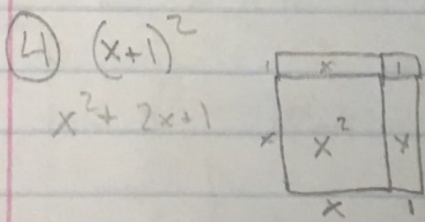 4 (x+1)²
x² + 2x+1
1 x 1
x x² x
x 1